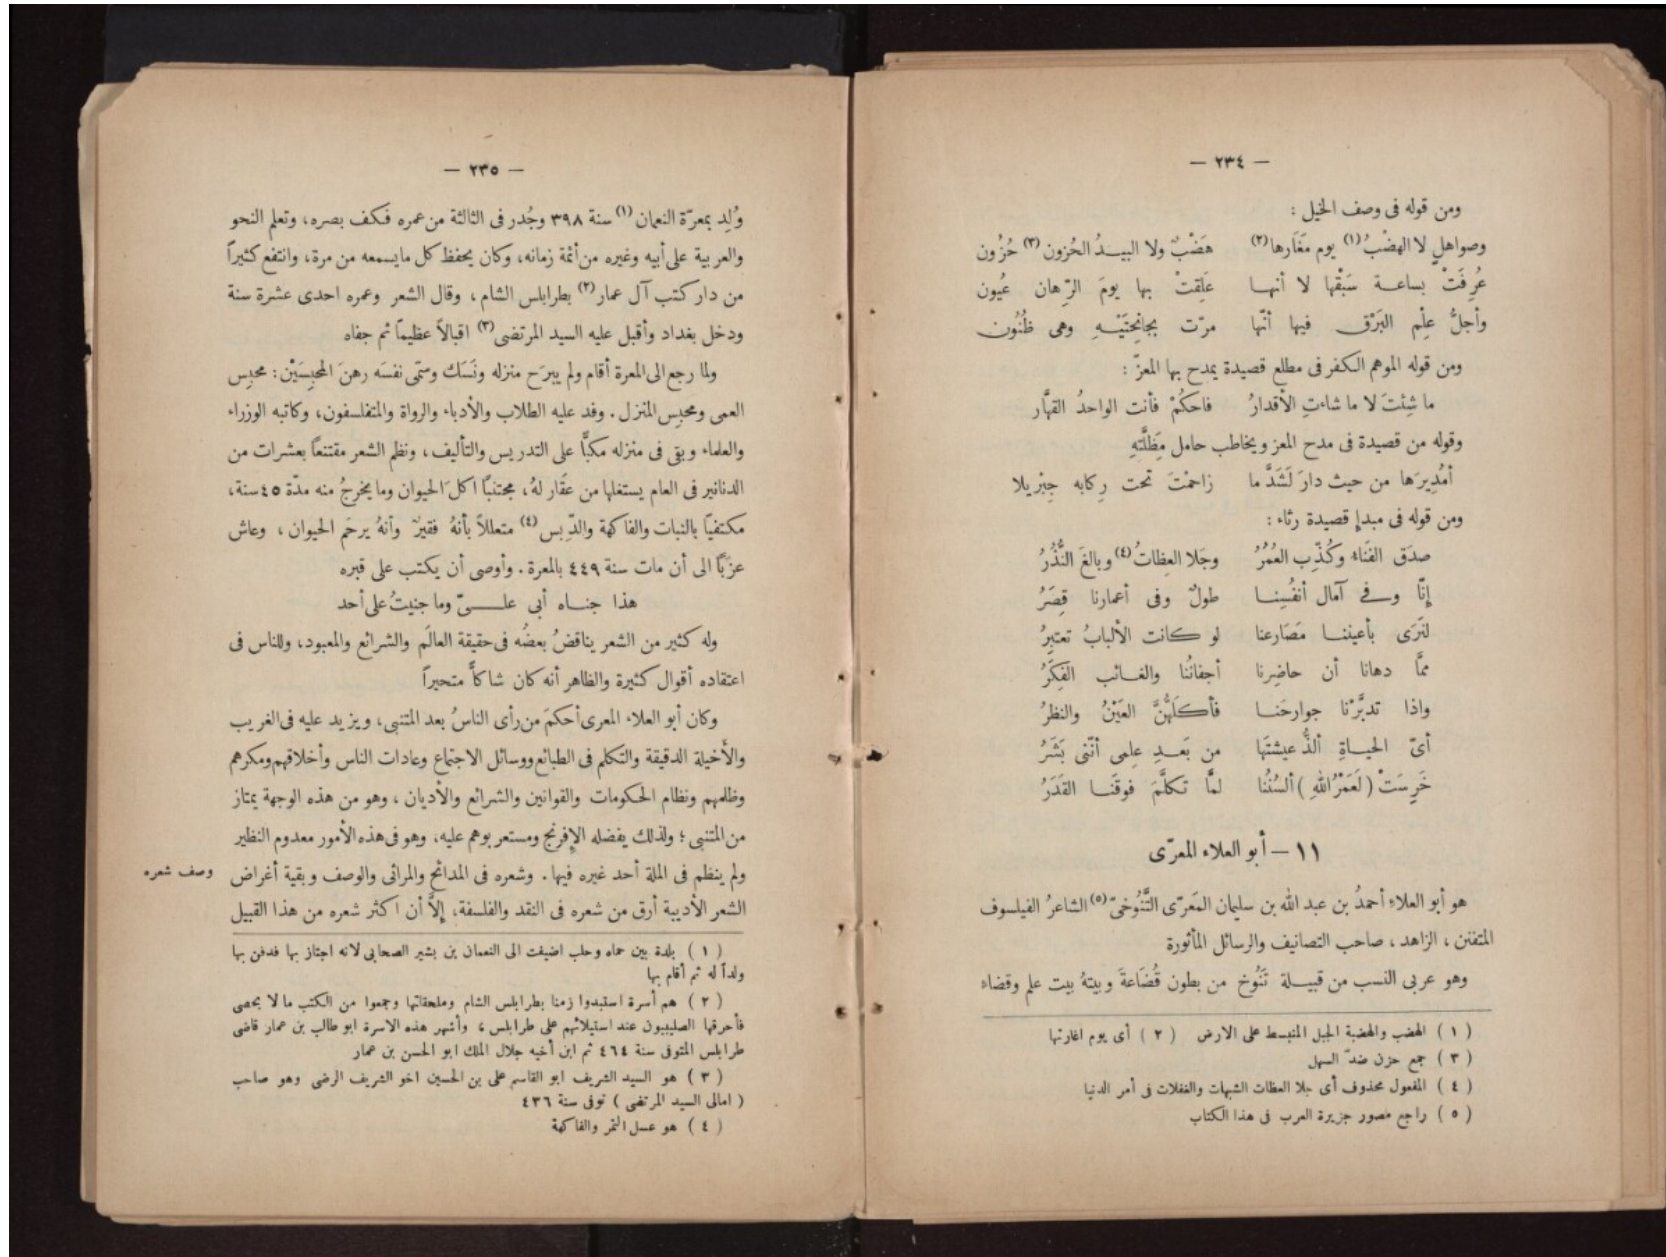 — ٢٣٤ —
ومن قوله فى وصف الخيل :
وصواهلٍ لا الهضْبُ (١) يوم مَغَارها (٢) هَضْبٌ ولا البيدُ الحُزون (٣) حُزُون
عُرِفَتْ بساعة سَبْقها لا أنها عَلِقتْ بها يومَ الرِّهان عُيون
وأجلُّ علِم البَرْق فيها أنّها مرّت بجانِحتَيْهِ وهى ظُنُون
ومن قوله الموهم الكفر فى مطلع قصيدة يمدح بها المعزّ :
ما شِئتَ لا ما شاءتِ الأقدارُ فاحكُمْ فأنت الواحدُ القهّار
وقوله من قصيدة فى مدح المعز ويخاطب حامل مِظلَّتهِ
أمُدِيرَها من حيث دارَ لَشَدَّ ما زاحمْتَ تحت رِكابه جِبْريلا
ومن قوله فى مبدإ قصيدة رثاء :
صدَق الفَناء وكُذِّب العُمُرُ وجَلا العِظاتُ (٤) وبالغَ النُّذُرُ
إنّا وفى آمال أنفُسِنا طولٌ وفى أعمارنا قِصَرُ
لنَرَى بأعيننا مَصَارعنا لو كانت الألبابُ تعتبِرُ
ممَّا دهانا أن حاضِرنا أجفانُنا والغائب الفِكَرُ
واذا تدبَّرْنا جوارحَنا فأكلَهُنَّ العَيْنُ والنظرُ
أىّ الحياةِ ألذُّ عيشتَها من بَعدِ عِلمى أنّنى بَشَرُ
خَرِسَتْ (لَعَمْرُ اللهِ) ألسُنُنا لمَّا تكلَّمَ فوقَنا القَدَرُ
١١ — أبو العلاء المعرّى
هو أبو العلاء أحمدُ بن عبد الله بن سليمان المَعَرّى التَّنُوخىّ (٥) الشاعرُ الفيلسوف
المتفنن ، الزاهد ، صاحب التصانيف والرسائل المأثورة
وهو عربى النسب من قبيلة تَنُوخ من بطون قُضَاعَةَ وبيتهُ بيت علم وقضاء
( ١ ) الهضب والهضبة الجبل المنبسط على الارض ( ٢ ) أى يوم اغارتها
( ٣ ) جمع حزن ضدّ السهل
( ٤ ) المفعول محذوف أى جلا العظات الشبهات والغفلات فى أمر الدنيا
( ٥ ) راجع مصور جزيرة العرب فى هذا الكتاب
— ٢٣٥ —
وُلِد بمعرّة النعمان (١) سنة ٣٩٨ وجُدر فى الثالثة من عمره فكف بصره، وتعلم النحو
والعربية على أبيه وغيره من أئمة زمانه، وكان يحفظ كل مايسمعه من مرة، وانتفع كثيراً
من دار كتب آل عمار (٢) بطرابلس الشام ، وقال الشعر وعمره احدى عشرة سنة
ودخل بغداد وأقبل عليه السيد المرتضى (٣) اقبالاً عظيماً ثم جفاه
ولما رجع الى المعرة أقام ولم يبرَح منزله ونَسَك وسمّى نفسَه رهنَ المحبِسَيْن : محبِس
العمى ومحبِس المنزل . وفد عليه الطلاب والأدباء والرواة والمتفلسفون، وكاتبه الوزراء
والعلماء وبقى فى منزله مكبًّا على التدريس والتأليف ، ونظم الشعر مقتنعاً بعشرات من
الدنانير فى العام يستغلها من عقَار لهُ، مجتنبًا اكلَ الحيوان وما يخرجُ منه مدّة ٤٥ سنة،
مكتفيًا بالنبات والفاكهة والدِّبس (٤) متعللاً بأنهُ فقيرٌ وأنهُ يرحَم الحيوان ، وعاش
عزَبًا الى أن مات سنة ٤٤٩ بالمعرة . وأوصى أن يكتب على قبره
هذا جناه أبى علىّ وما جنيتُ على أحد
وله كثير من الشعر يناقضُ بعضُه فى حقيقة العالَم والشرائع والمعبود، وللناس فى
اعتقاده أقوال كثيرة والظاهر أنه كان شاكاًّ متحيراً
وكان أبو العلاء المعرى أحكمَ من رأى الناسُ بعد المتنبى، ويزيد عليه فى الغريب
والأخيلة الدقيقة والتكلم فى الطبائع ووسائل الاجتماع وعادات الناس وأخلاقهم ومكرهم
وظلمهم ونظام الحكومات والقوانين والشرائع والأديان ، وهو من هذه الوجهة يمتاز
من المتنبى ؛ ولذلك يفضله الإفرنج ومستعربوهم عليه، وهو فى هذه الأمور معدوم النظير
ولم ينظم فى الملة أحد غيره فيها . وشعره فى المدائح والمراثى والوصف وبقية أغراض
وصف شعره
الشعر الأدبية أرق من شعره فى النقد والفلسفة، إلاَّ أن اكثر شعره من هذا القبيل
( ١ ) بلدة بين حماه وحلب اضيفت الى النعمان بن بشير الصحابى لانه اجتاز بها فدفن بها
ولداً له ثم أقام بها
( ٢ ) هم أسرة استبدوا زمنا بطرابلس الشام وملحقاتها وجمعوا من الكتب ما لا يحصى
فأحرقها الصليبيون عند استيلائهم على طرابلس ، وأشهر هذه الاسرة ابو طالب بن عمار قاضى
طرابلس المتوفى سنة ٤٦٤ ثم ابن أخيه جلال الملك ابو الحسن بن عمار
( ٣ ) هو السيد الشريف ابو القاسم على بن الحسين اخو الشريف الرضى وهو صاحب
( امالى السيد المرتضى ) توفى سنة ٤٣٦
( ٤ ) هو عسل التمر والفاكهة